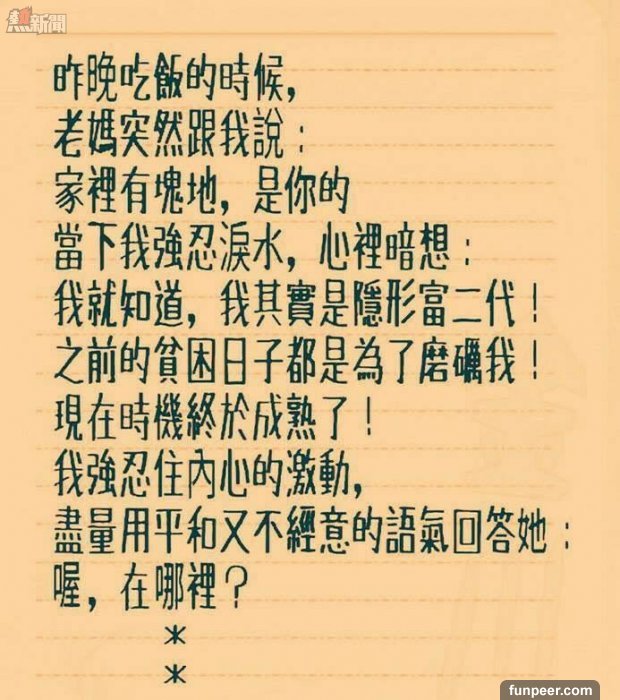 新聞
昨晚吃飯的時候，
老媽突然跟我說：
家裡有塊地，是你的
當下我強忍淚水，心裡暗想：
我就知道，我其實是隱形富二代！
之前的貧困日子都是為了磨礪我！
現在時機終於成熟了！
我強忍住內心的激動，
盡量用平和又不經意的語氣回答她：
喔，在哪裡？
*
*
funpeer.com